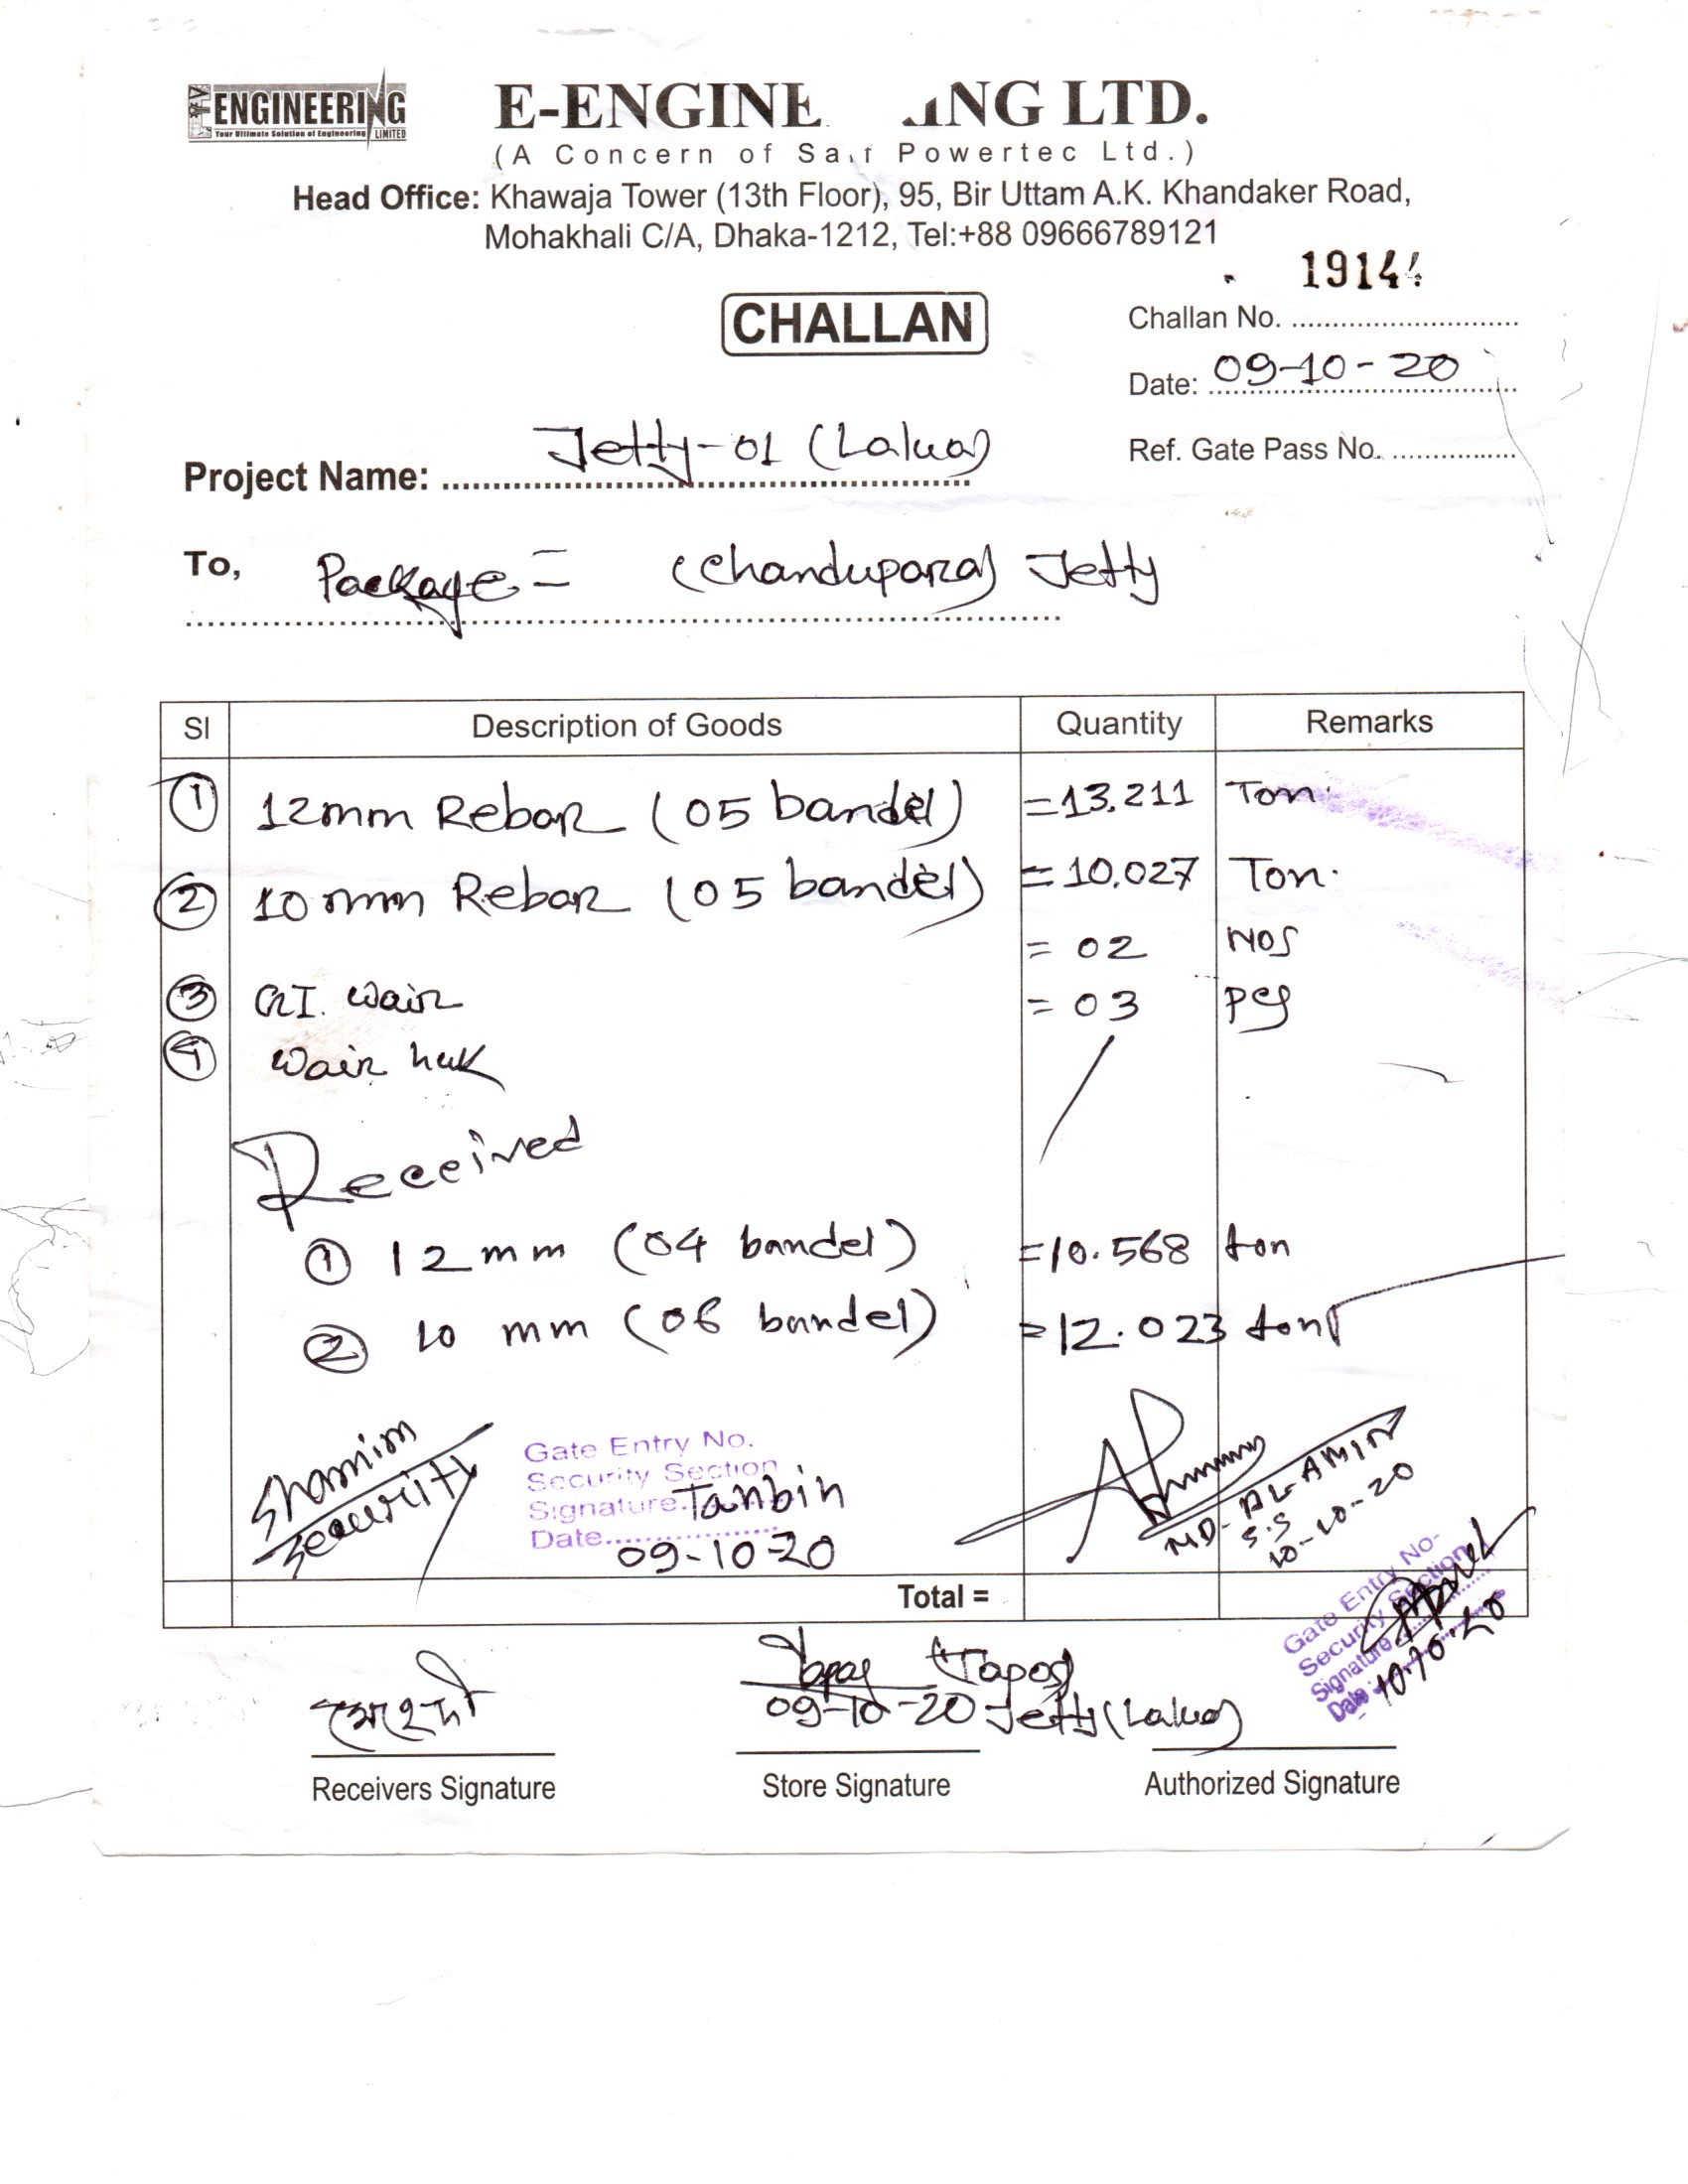 ENGINEERING
Your Ultimate Solution of Engineering LIMITED
E-ENGINE ING LTD.
(A Concern of Saif Powertec Ltd.)
Head Office: Khawaja Tower (13th Floor), 95, Bir Uttam A.K. Khandaker Road,
Mohakhali C/A, Dhaka-1212, Tel:+88 09666789121
19144
CHALLAN
Challan No.
Date: 09-10-20
Ref. Gate Pass No.
Project Name: Jetty-01 (Lalua)
To, Package = (Chandupara) Jetty
Sl Description of Goods Quantity Remarks
1 12mm Rebar (05 bandel) =13.211 Ton.
2 10mm Rebar (05 bandel) =10.027 Ton.
3 GI. wair = 02 NOS
4 wair huk = 03 pcs
Received
1 12 mm (04 bandel) =10.568 ton
2 10 mm (06 bandel) =12.023 ton
Shamim
Security
Gate Entry No.
Security Section
Signature. Tanbin
Date 09-10-20
MD-AL-AMIN
S.S
10-10-20
Total =
Gate Entry No-
Security Section
Signature
Date: 10.10.20
Tapos (Tapos)
09-10-20 Jetty (Lalua)
Receivers Signature Store Signature Authorized Signature